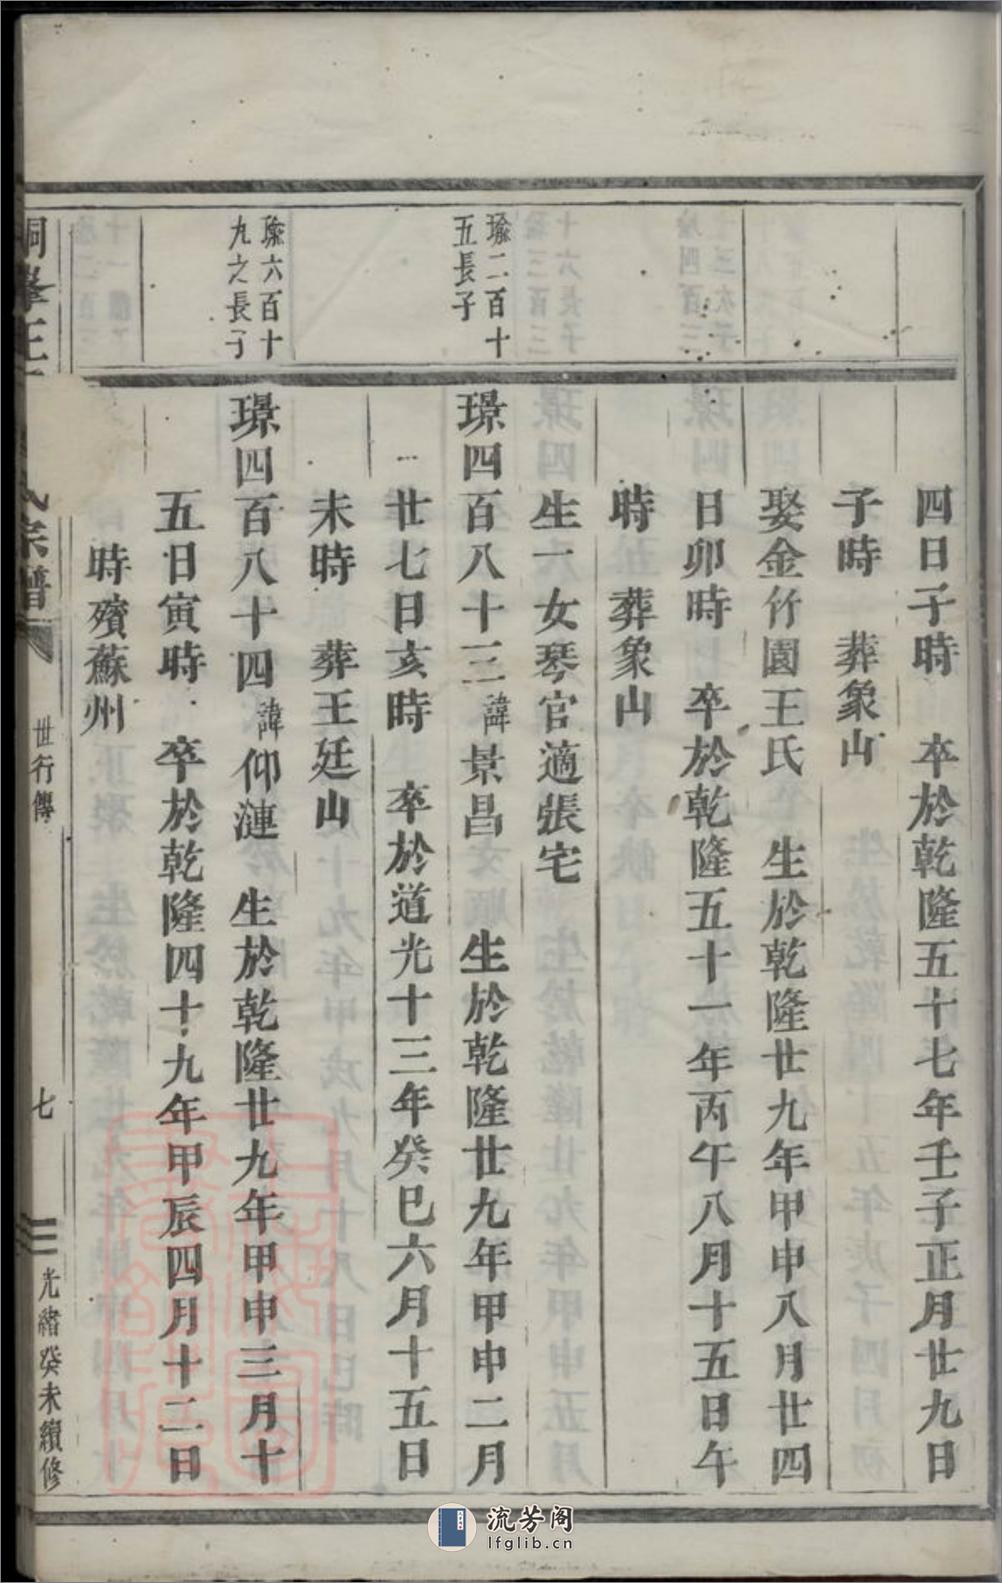 四日子時　卒於乾隆五十七年壬子正月廿九日
子時　葬象山
娶金竹園王氏　生於乾隆廿九年甲申八月廿四
日卯時　卒於乾隆五十一年丙午八月十五日午
時　葬象山
生一女琴官適張宅
瑜二百十
五長子
璟四百八十三諱景昌　生於乾隆廿九年甲申二月
廿七日亥時　卒於道光十三年癸巳六月十五日
未時　葬王廷山
瑜六百十
九之長子
璟四百八十四諱仰漣　生於乾隆廿九年甲申三月十
五日寅時　卒於乾隆四十九年甲辰四月十二日
時殯蘇州
峯王
氏宗譜
世行傳
七
光緒癸未續修
流芳阁
lfglib.cn